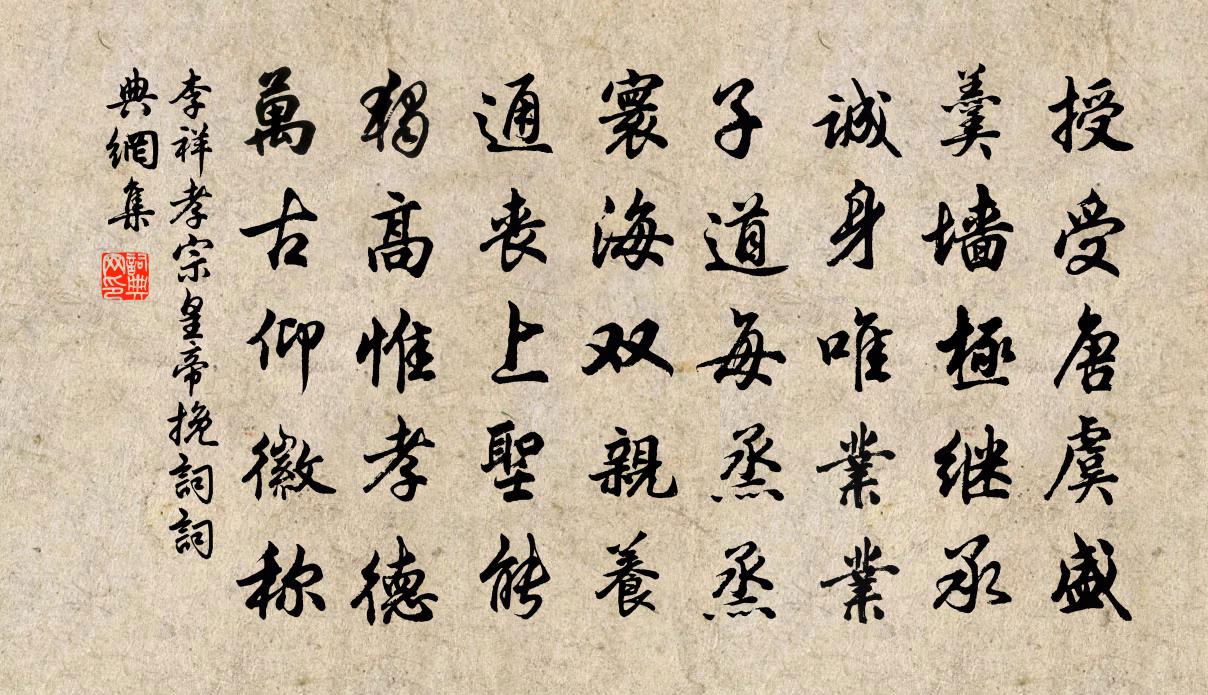 授受唐虞盛
羹墙極继承
誠身唯業業
子道每烝烝
寰海双親養
通丧上聖能
独高惟孝德
萬古仰徽称
李祥孝宗皇帝挽詞詞
典網集
詞典
网印